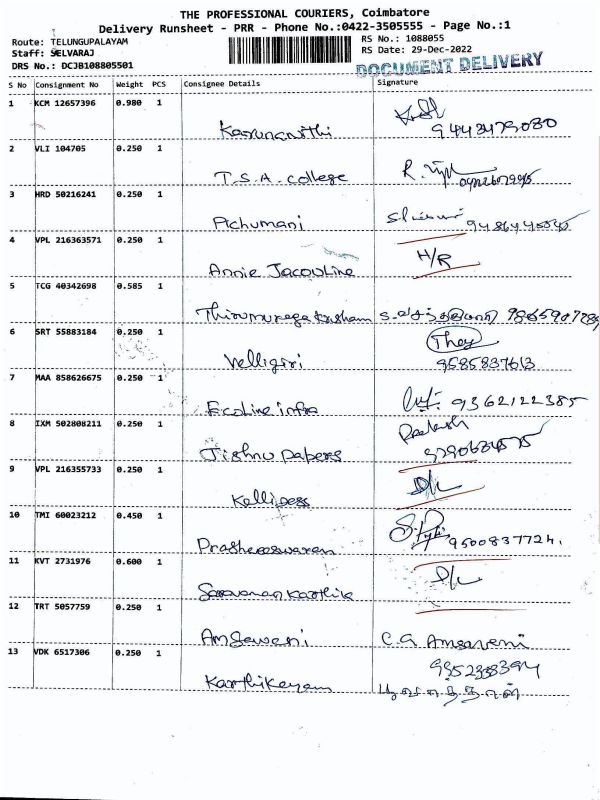 THE PROFESSIONAL COURIERS, Coimbatore
Delivery Runsheet - PRR - Phone No.:0422-3505555 - Page No.:1
Route: TELUNGUPALAYAM
RS No.: 1088055
Staff: SELVARAJ
RS Date: 29-Dec-2022
DRS No.: DCJB108805501
DOCUMENT DELIVERY
S No Consignment No Weight PCS Consignee Details Signature
1 KCM 12657396 0.980 1
Karunanithi 9443479080
2 VLI 104705 0.250 1
T.S.A. college R.
3 HRD 50216241 0.250 1
Pichumani
4 VPL 216363571 0.250 1
Annie Jacquline H/R
5 TCG 40342698 0.585 1
6 SRT 55883184 0.250 1
They
Velligiri 9585837613
7 MAA 858626675 0.250 1
Ecoline infra 9362122385
8 IXM 502808211 0.250 1
Jishnu papers
9 VPL 216355733 0.250 1
D/L
10 TMI 60023212 0.450 1
9500837724.
11 KVT 2731976 0.600 1
D/L
Saravanan Karthik
12 TRT 5057759 0.250 1
Amsaweni C.G Amsaveni
13 VDK 6517306 0.250 1
Karthikeyam